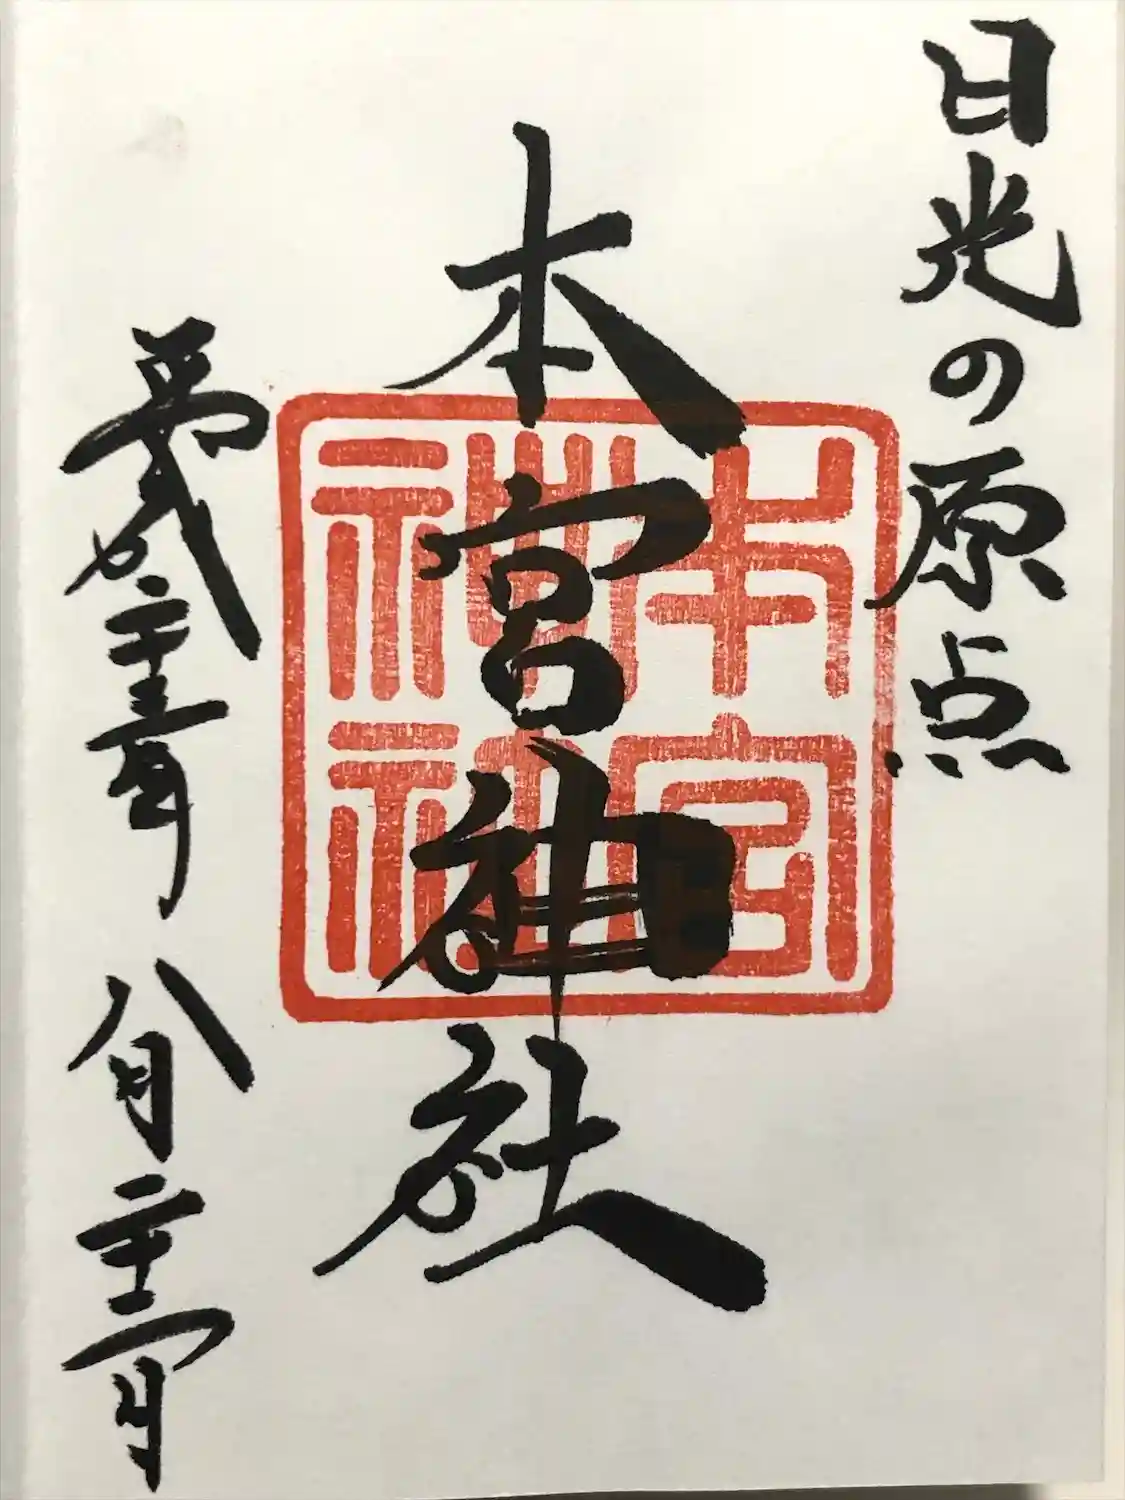 日光の原点
本宮神社
本宮
神社
平成 二十 年 八月二十 日